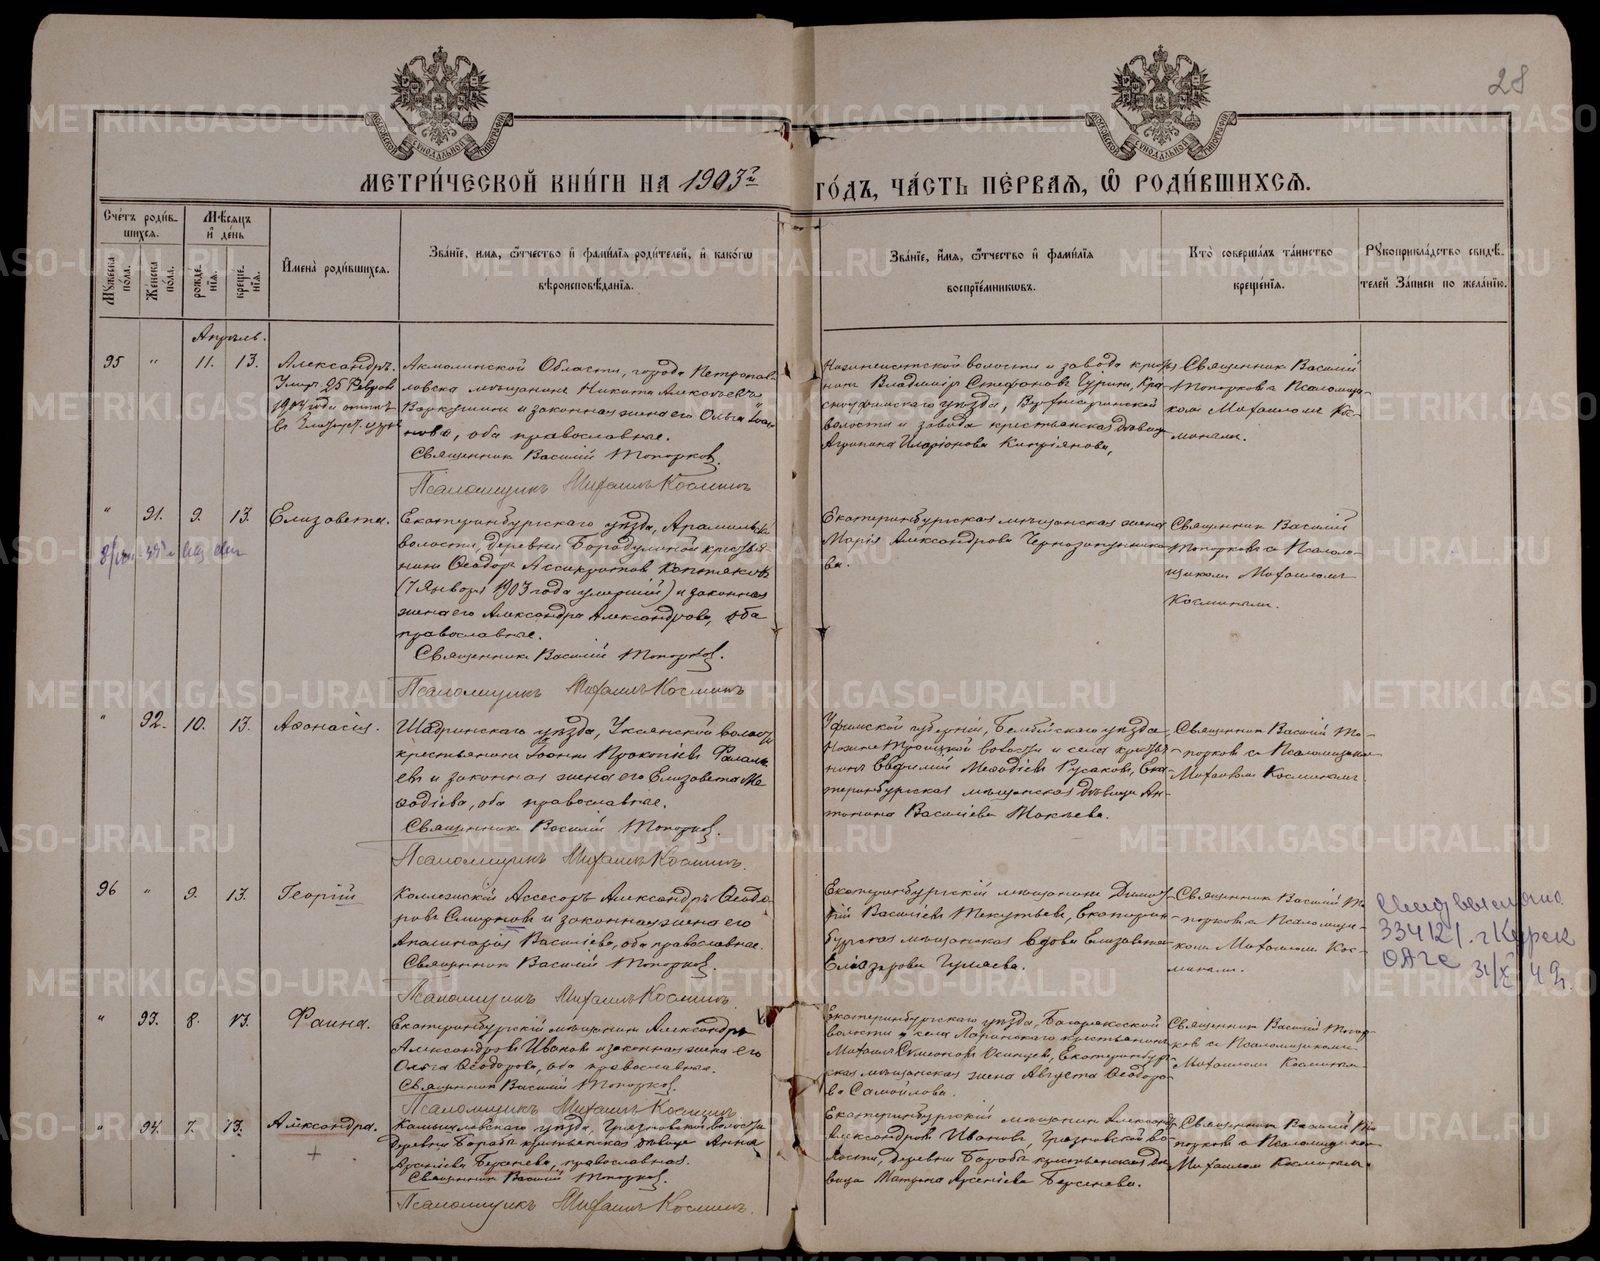 28
МЕТРИ́ЧЕСКОЙ КНИ́ГИ НА 1903 ГО́ДЪ, ЧА́СТЬ ПЕ́РВАЯ, Ѽ РОДИ́ВШИХСЯ.
Сче́тъ роди́вшихся.
Му́жеска по́ла.
Же́нска по́ла.
Мѣ́сяцъ и҆ де́нь
рожде́нїя.
креще́нїя.
И҆мена̀ роди́вшихся.
Зва́нїе, и҆мя, ѻ҆́тчество и҆ фамі́лїя роди́телей, и҆ како́гѡ
вѣроисповѣ́данїя.
Зва́нїе, и҆́мя, ѻ҆́тчество и҆ фамі́лїя
воспрїе́мниковъ.
Кто̀ соверша́лъ та́инство
креще́нїя.
Рꙋкоприкла́дство свидѣ́-
телей за́писи по жела́нїю.
Апрѣль.
95 " 11. 13. Александръ.
Акмолинской Области, города Петропав-
ловска мѣщанинъ Никита Алексѣевъ
и законная жена его Ольга Іоан-
нова, оба православные.
Священникъ Василій Топорковъ.
Псаломщикъ Михаилъ Косминъ
волости и завода крестья-
нинъ Владиміръ Стефановъ Чуринъ, Кра-
сноуфимскаго уѣзда,
волости и завода крестьянская дѣвица
Агрипина Иларіонова Кипріянова,
Священникъ Василій
Топорковъ с Псаломщи-
комъ Михаиломъ Кос-
минымъ.
" 91. 9. 13. Елизавета.
Екатеринбургскаго уѣзда, Арамильской
волости, деревни Бородулиной крестья-
нинъ Ѳеодоръ
(7 Января 1903 года умершій) и законная
жена его Александра Александрова, оба
православные.
Священникъ Василій Топорковъ.
Псаломщикъ Михаилъ Косминъ
Екатеринбургская мѣщанская жена
Марія Александрова
Священникъ Василій
Топорковъ с Псалом-
щикомъ Михаиломъ
Косминымъ.
" 92. 10. 13. Аѳанасія.
Шадринскаго уѣзда, Уксянской волости
крестьянинъ Іоаннъ Прокопіевъ
и законная жена его Елизавета Ме-
ѳодіева, оба православные.
Священникъ Василій Топорковъ.
Псаломщикъ Михаилъ Косминъ.
Уфимской губерніи, Белебейскаго уѣзда,
Троицкой волости и села крестья-
нинъ Евѳимій Меѳодіевъ Русаковъ, Ека-
теринбургская мѣщанская дѣвица Ан-
тонина Василіева Мокѣева.
Священникъ Василій То-
порковъ с Псаломщикомъ
Михаиломъ Косминымъ.
96 " 9. 13. Георгій
Коллежскій Ассесоръ Александръ Ѳеодо-
ровъ Смирновъ и законная жена его
Аполинарія Василіева, оба православные.
Священникъ Василій Топорковъ.
Псаломщикъ Михаилъ Косминъ
Екатеринбургскій мѣщанинъ Димит-
рій Василіевъ Текутьевъ, Екатерин-
бургская мѣщанская вдова Елизавета
Елеазарова Гуляева.
Священникъ Василій То-
порковъ с Псаломщи-
комъ Михаиломъ Кос-
минымъ.
334121 г Курск
ОАГС
31/X 49г.
" 93. 8. 13. Фаина.
Екатеринбургскій мѣщанинъ Александръ
Александровъ Ивановъ и законная жена его
Ольга Ѳеодорова, оба православные.
Священникъ Василій Топорковъ.
Псаломщикъ Михаилъ Косминъ
Екатеринбургскаго уѣзда, Багарякской
волости и села крестьянинъ
Михаилъ Симеоновъ Екатеринбург-
ская мѣщанская жена Августа Ѳеодоро-
ва Самойлова.
Священникъ Василій Топор-
ковъ с Псаломщикомъ
Михаиломъ Косминымъ
" 94. 7. 13. Александра.
Камышловскаго уѣзда, Грязновской волости
деревни Бараба крестьянская дѣвица Анна
Арсеніева Берсенева, православная.
Священникъ Василій Топорковъ.
Псаломщикъ Михаилъ Косминъ.
Екатеринбургскій мѣщанинъ Александръ
Александровъ Ивановъ, Грязновской во-
лости, деревни Бараба крестьянская дѣ-
вица Матрона Арсеніева Берсенева.
Священникъ Василій То-
порковъ с Псаломщикомъ
Михаиломъ Косминымъ.
METRIKI.GASO-URAL.RU